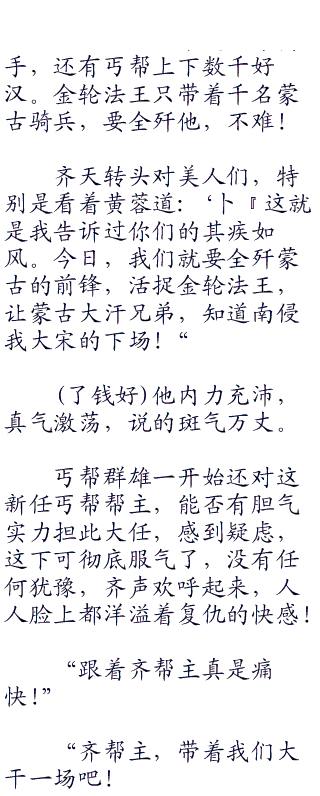 手，还有丐帮上下数千好
汉。金轮法王只带着千名蒙
古骑兵，要全歼他，不难！
齐天转头对美人们，特
别是看着黄蓉道：‘卜『这就
是我告诉过你们的其疾如
风。今日，我们就要全歼蒙
古的前锋，活捉金轮法王，
让蒙古大汗兄弟，知道南侵
我大宋的下场！“
(了钱好)他内力充沛，
真气激荡，说的斑气万丈。
丐帮群雄一开始还对这
新任丐帮帮主，能否有胆气
实力担此大任，感到疑虑，
这下可彻底服气了，没有任
何犹豫，齐声欢呼起来，人
人脸上都洋溢着复仇的快感！
“跟着齐帮主真是痛
快！”
“齐帮主，带着我们大
干一场吧！